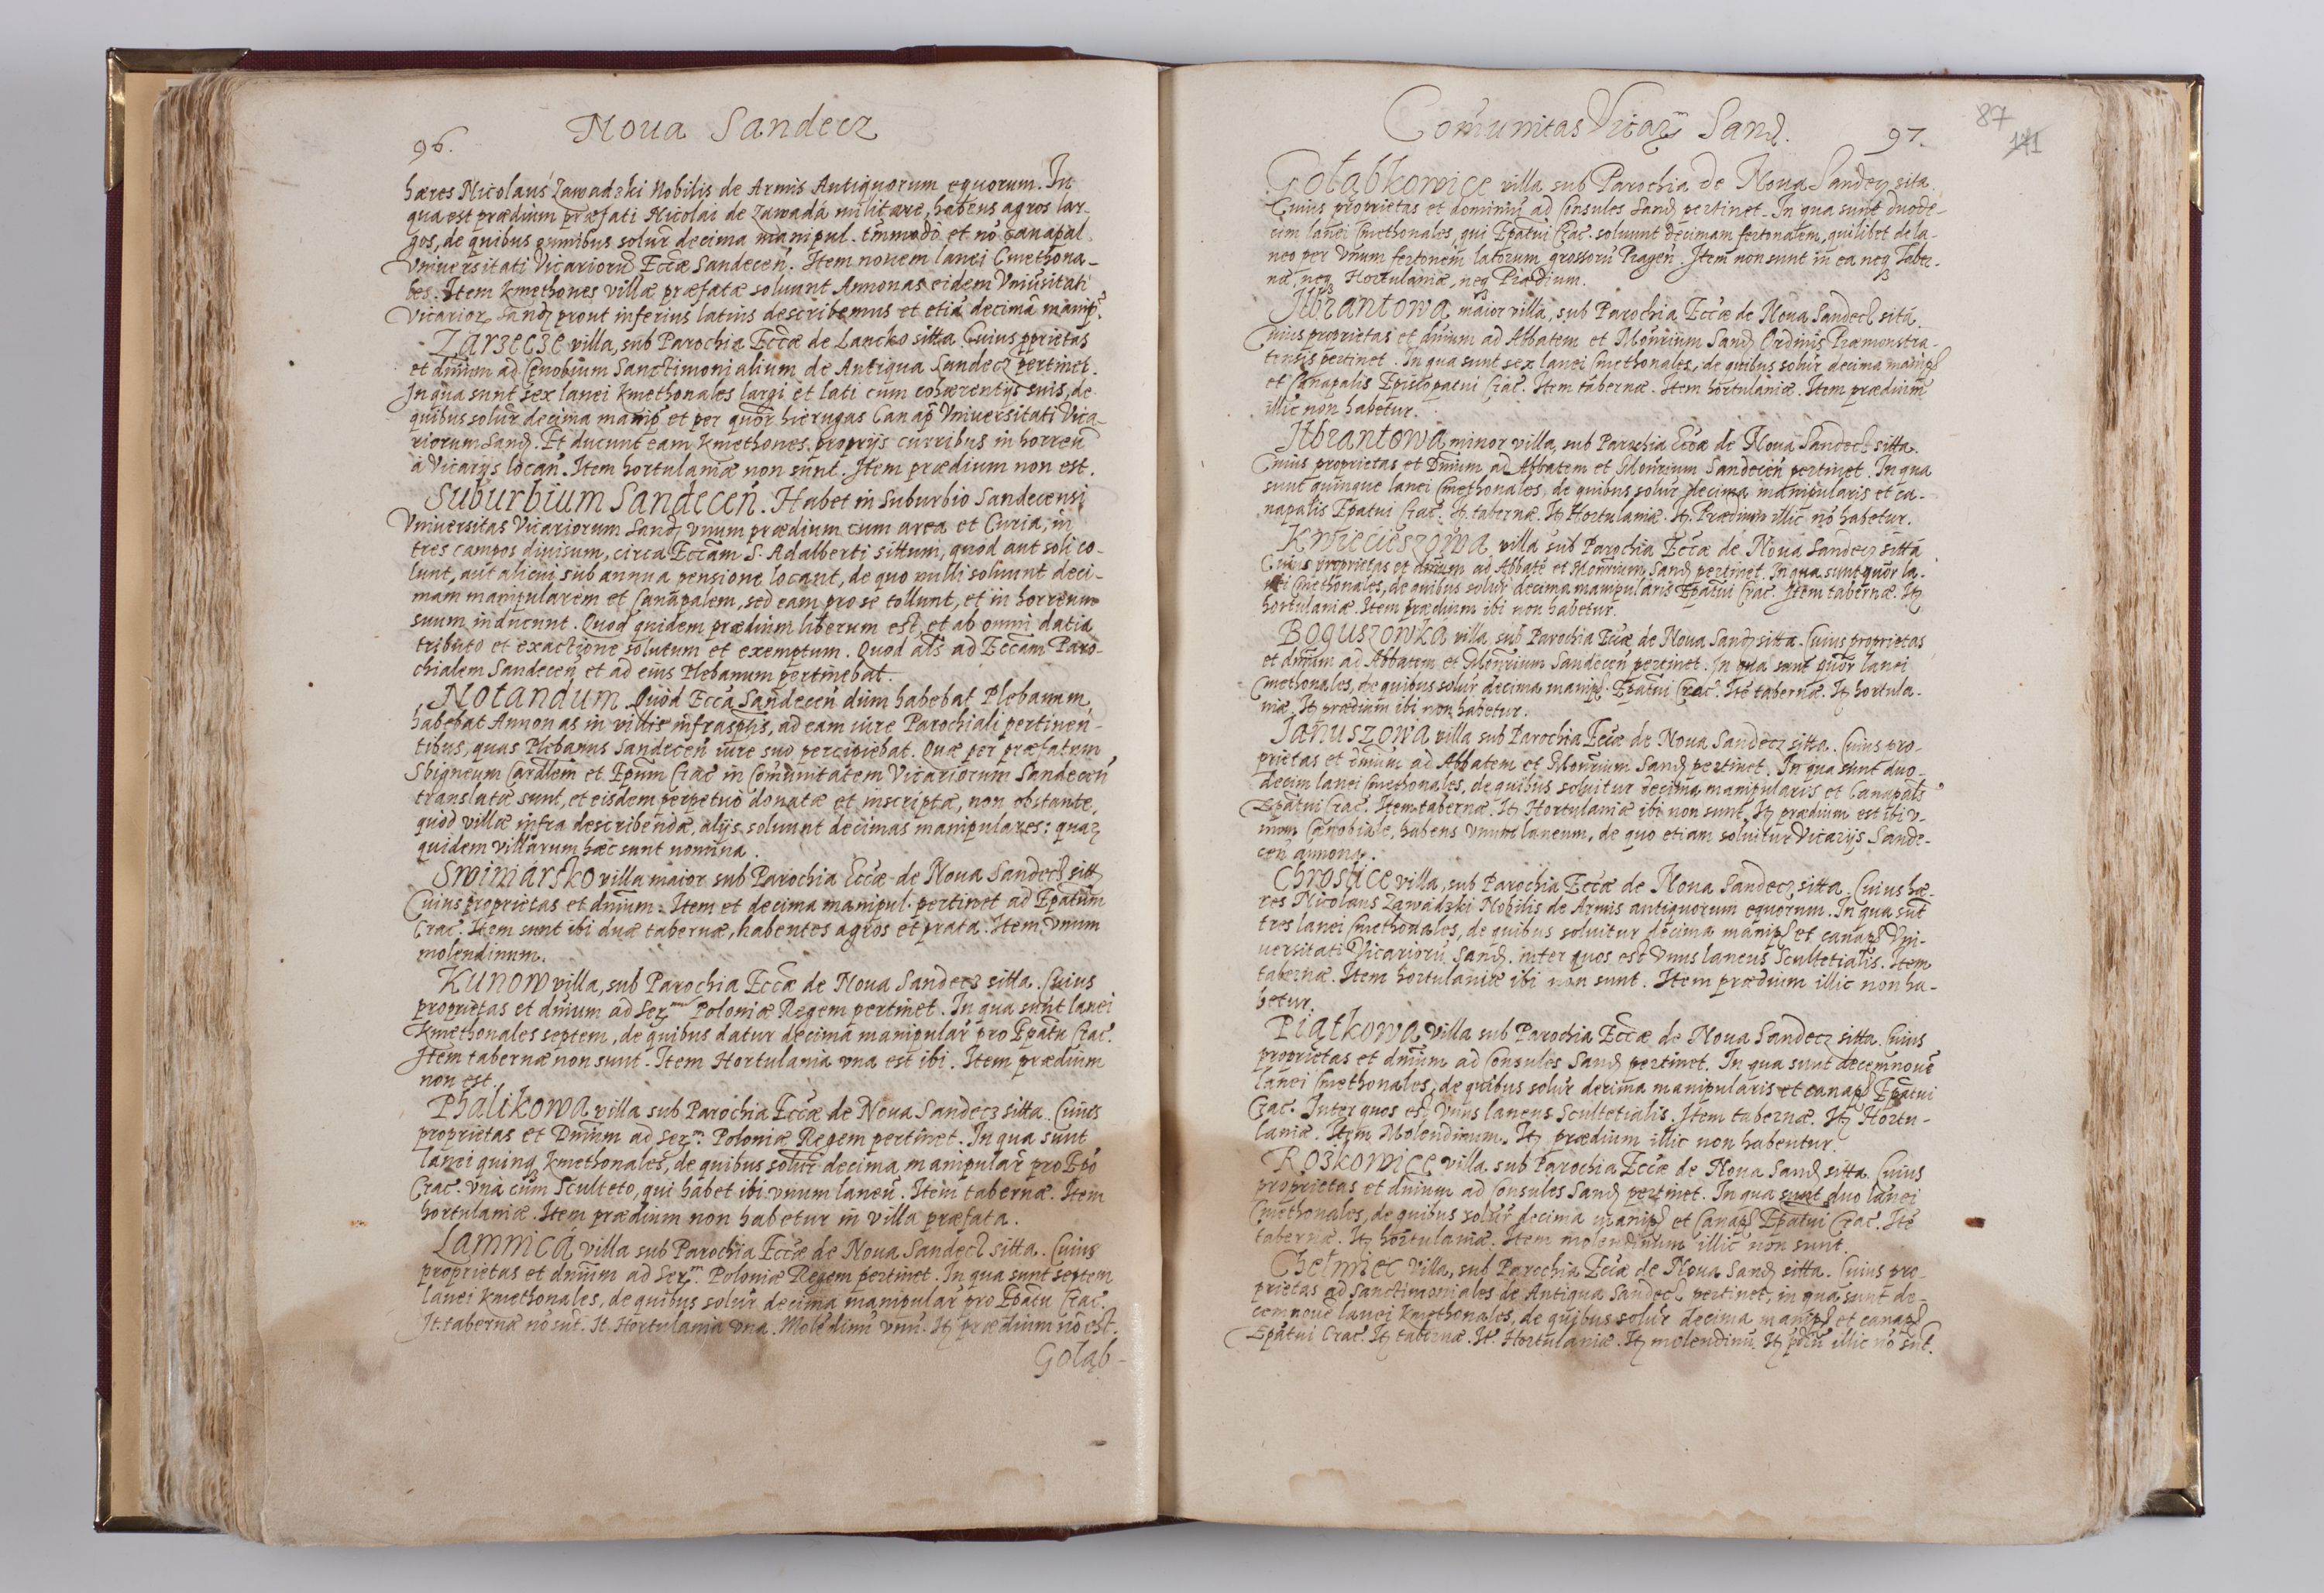 96.
Noua Sandecz
hæres Nicolaus Zawadzki Nobilis de Armis Antiquorum equorum. In
qua est prædium præfati Nicolai de Zawada militare, habens agros lar-
gos, de quibus omnibus solur̃ decima manipul. tm̃modo et nō canapal.
Vniuersitati Vicariorū Eccæ Sandeceñ. Item nouem lanei Cmethona-
les. Item kmethones villæ præfatæ soluunt Annonas eidem Vniūsitati
Vicarior Sand prout inferius latius describemus et etiā decimā manip.
Zarzecze villa, sub Parochia Eccæ de Lancko sitta. Cuius pprietas
et dñium ad Cenobium Sanctimonialium de Antiqua Sandecz pertinet.
In qua sunt sex lanei kmethonales largi et lati cum cohærentijs suis, de
quibus solur̃ decima manip et per quōr hierugas Canap Vniuersitati Vica-
riorum Sand. Et ducunt eam kmethones proprijs curribus in horreū
à Vicarijs locañ. Item hortulaniæ non sunt. Item prædium non est.
Suburbium Sandeceñ. Habet in Suburbio Sandecensi
Vniuersitas Vicariorum Sand vnum prædium cum area et Curia, in
tres campos diuisum, circa Eccam S. Adalberti sittum, quod aut soli co-
lunt, aut alicui sub annua pensione locant, de quo nulli soluunt deci-
mam manipularem et Canapalem, sed eam pro se tollunt, et in horreum
suum inducunt. Quod quidem prædium liberum est, et ab omni datia
tributo et exactione solutum et exemptum. Quod als ad Eccam Paro-
chialem Sandeceñ et ad eius Plebanum pertinebat.
Notandum Quòd Ecca Sandeceñ dum habebat Plebanum,
habebat Annonas in villis infrasptis, ad eam iure Parochiali pertinen-
tibus, quas Plebanus Sandeceñ iure suo percipiebat. Quæ per præfatum
Sbigneum Cardlem et Epum Crac in Cōmunitatem Vicariorum Sandeceñ
translatæ sunt, et eisdem perpetuò donatæ et inscriptæ, non obstante,
quòd villæ infra describendæ, alijs soluunt decimas manipulares: quar
quidem villarum hæc sunt nomina.
Swiniarsko villa maior sub Parochia Eccæ de Noua Sandecz sitt
Cuius proprietas et dñium. Item et decima manipul. pertinet ad Epatum
Crac. Item sunt ibi duæ tabernæ, habentes agros et prata. Item vnum
molendinum.
Kunow villa, sub Parochia Eccæ de Noua Sandecz sitta. Cuius
proprietas et dñium ad Ser Poloniæ Regem pertinet. In qua sunt lanei
kmethonales septem, de quibus datur decima manipular̃ pro Epatu Crac.
Item tabernæ non sunt. Item Hortulania vna est ibi. Item prædium
non est.
Phalikowa villa sub Parochia Eccæ de Noua Sandecz sitta. Cuius
proprietas et Dñium ad Ser. Poloniæ Regem pertinet. In qua sunt
lanei quinq kmethonales, de quibus solur̃ decima manipular̃ pro Epō
Crac. vnà cum Sculteto, qui habet ibi vnum laneū. Item tabernæ. Item
hortulaniæ. Item prædium non habetur in villa præfata.
Lamnica villa sub Parochia Eccæ de Noua Sandecz sitta. Cuius
proprietas et dñium ad Ser. Poloniæ Regem pertinet. In qua sunt septem
lanei kmethonales, de quibus solur̃ decima manipular̃ pro Epatu Crac.
It. tabernæ nō sūt. It. Hortulania vna. Molēdinū vnū. It prædium nō est.
Golab-
Com̃unitas Vicar Sand.
97.
87
141
Gołąbkowice villa sub Parochia de Noua Sandecz sita.
Cuius proprietas et dominiū ad Consules Sand pertinet. In qua sunt duode-
cim lanei Cmethonales, qui Epatui Crac. soluunt decimam fertonalem, quilibet de la-
neo per vnum fertonem latorum grossorū Pragen. Item non sunt in ea neq Taber-
næ, neq Hortulaniæ, neq Prædium.
Jlbrantowa maior villa, sub Parochia Eccæ de Noua Sandecz sita.
Cuius proprietas et dñium ad Abbatem et Monrium Sand Ordinis Præmonstra-
tensis pertinet. In qua sunt sex lanei Cmethonales, de quibus solur̃ decima manip
et Canapalis Episcopatui Crac. Item tabernæ. Item hortulaniæ. Item prædium
illic non habetur.
Jlbrantowa minor villa, sub Parochia Eccæ de Noua Sandecz sitta.
Cuius proprietas et Dñium ad Abbatem et Monrium Sandeceñ pertinet. In qua
sunt quinque lanei Cmethonales, de quibus solur̃ decima manipularis et ca-
napalis Epatui Crac. It tabernæ. It Hortulaniæ. It Prædium illic nō habetur.
Kwieciszowa villa sub Parochia Eccæ de Noua Sandecz sitta
Cuius proprietas et dñium ad Abbatē et Monrium Sand pertinet. In qua sunt quōr la-
nei Cmethonales, de quibus solur̃ decima manipularis Epatui Crac. Item tabernæ. It
hortulaniæ. Item prædium ibi non habetur.
Boguszowka villa, sub Parochia Eccæ de Noua Sand sitta. Cuius proprietas
et dñium ad Abbatem et Monrium Sandeceñ pertinet. In qua sunt quōr lanei
Cmethonales, de quibus solur̃ decima manip. Epatui Crac. Itē tabernæ. It hortula-
niæ. It prædium ibi non habetur.
Januszowa villa sub Parochia Eccæ de Noua Sandecz sitta. Cuius pro-
prietas et dñium ad Abbatem et Monrium Sand pertinet. In qua sunt duo-
decim lanei Cmethonales, de quibus soluitur decima manipularis et Canapals
Epatui Crac. Item tabernæ. It Hortulaniæ ibi non sunt. It prædium est ibi v-
num Cænobiale, habens vnum laneum, de quo etiam soluitur Vicarijs Sande-
ceñ annona.
Chroslice villa, sub Parochia Eccæ de Noua Sandecz sitta. Cuius hæ-
res Nicolaus Zawadzki Nobilis de Armis antiquorum equorum. In qua sūt
tres lanei Cmethonales, de quibus soluitur decima manip et canap Vni-
uersitati Vicariorū Sand. inter quos est vnus laneus Scultetialis. Item
tabernæ. Item hortulaniæ ibi non sunt. Item prædium illic non ha-
betur.
Piątkowa villa sub Parochia Eccæ de Noua Sandecz sitta. Cuius
proprietas et dñium ad Consules Sand pertinet. In qua sunt decemnouē
lanei Cmethonales, de quibus solur̃ decima manipularis et canap Epatui
Crac. Inter quos est vnus laneus Scultetialis. Item tabernæ. It Hortu-
laniæ. Item Molendinum. It prædium illic non habentur.
Roszkowice villa sub Parochia Eccæ de Noua Sand sitta. Cuius
proprietas et dñium ad Consules Sand pertinet. In qua sunt duo lanei
Cmethonales, de quibus solur̃ decima manip et Canap Epatui Crac. Itē
tabernæ. It hortulaniæ. Item molendinum illic non sunt.
Chełmiec villa, sub Parochia Eccæ de Noua Sand sitta. Cuius pro-
prietas ad Sanctimoniales de Antiqua Sandecz pertinet, in qua sunt de-
cemnouē lanei kmethonales, de quibus solur̃ decima manip et canap
Epatui Crac. It tabernæ. It. Hortulaniæ. It molendinū. It pdiū illic nō sūt.